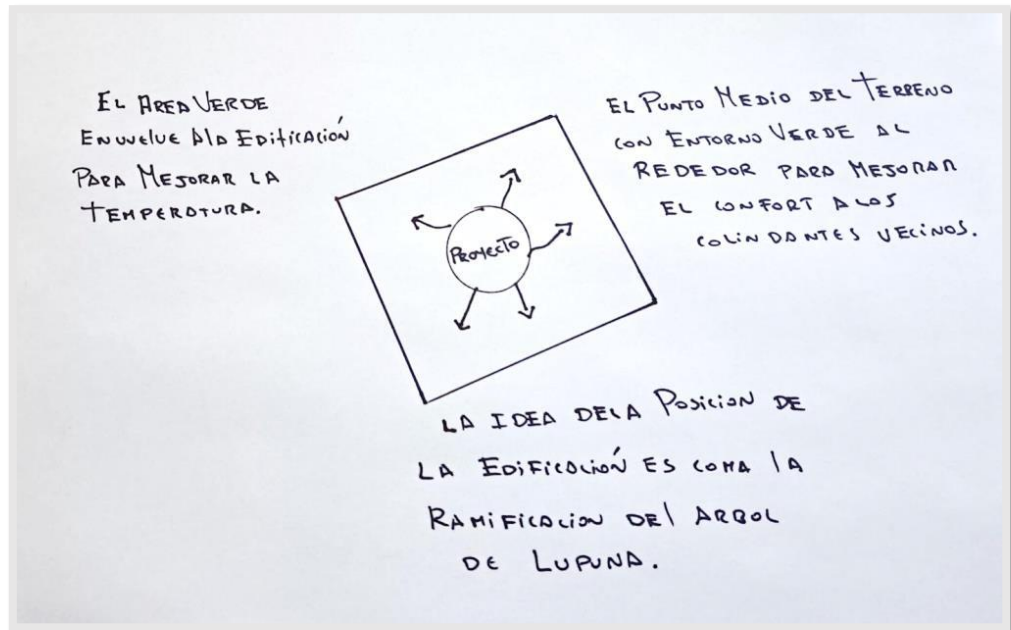 EL AREA VERDE
ENVUELVE A LA EDIFICACIÓN
PARA MEJORAR LA
TEMPERATURA.
EL PUNTO MEDIO DEL TERRENO
CON ENTORNO VERDE AL
REDEDOR PARA MEJORAR
EL CONFORT A LOS
COLINDANTES VECINOS.
PROYECTO
LA IDEA DE LA POSICION DE
LA EDIFICACIÓN ES COMA LA
RAMIFICACION DEL ARBOL
DE LUPUNA.